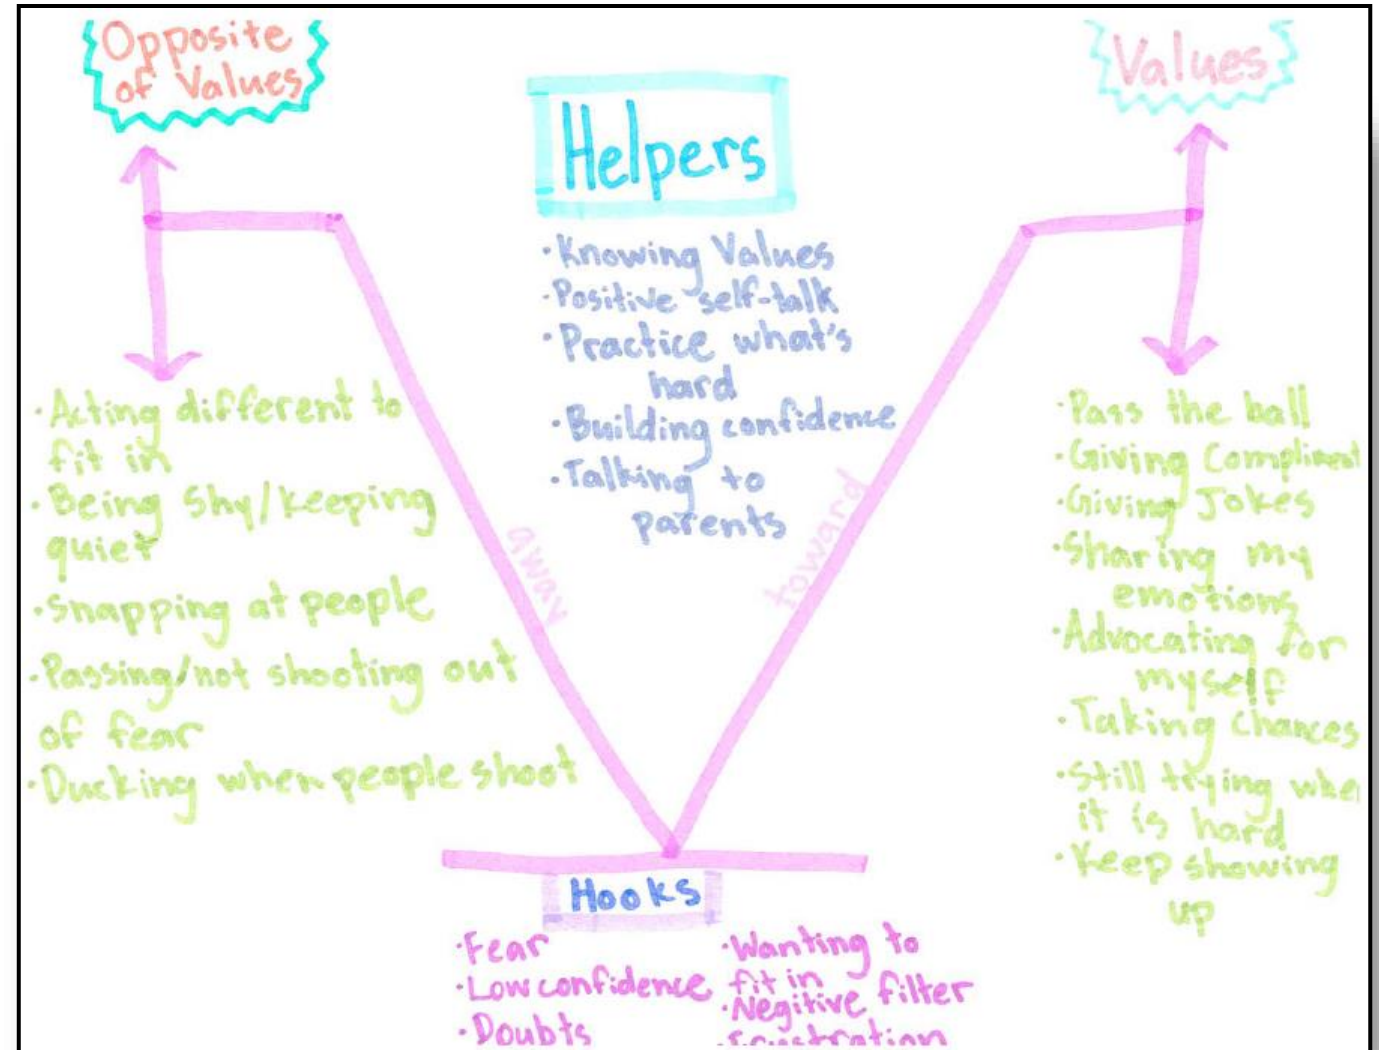 Opposite
of Values
Helpers
• Knowing Values
• Positive self-talk
• Practice what's
hard
• Building confidence
• Talking to
parents
Values
away
toward
• Acting different to
fit in
• Being shy/keeping
quiet
• Snapping at people
• Passing/not shooting out
of fear
• Ducking when people shoot
• Pass the ball
• Giving Compliment
• Giving Jokes
• Sharing my
emotions
• Advocating for
myself
• Taking chances
• Still trying whe
it is hard
• Keep showing
up
Hooks
• Fear
• Low confidence
• Doubts
• Wanting to
fit in
• Negitive filter
• Frustration